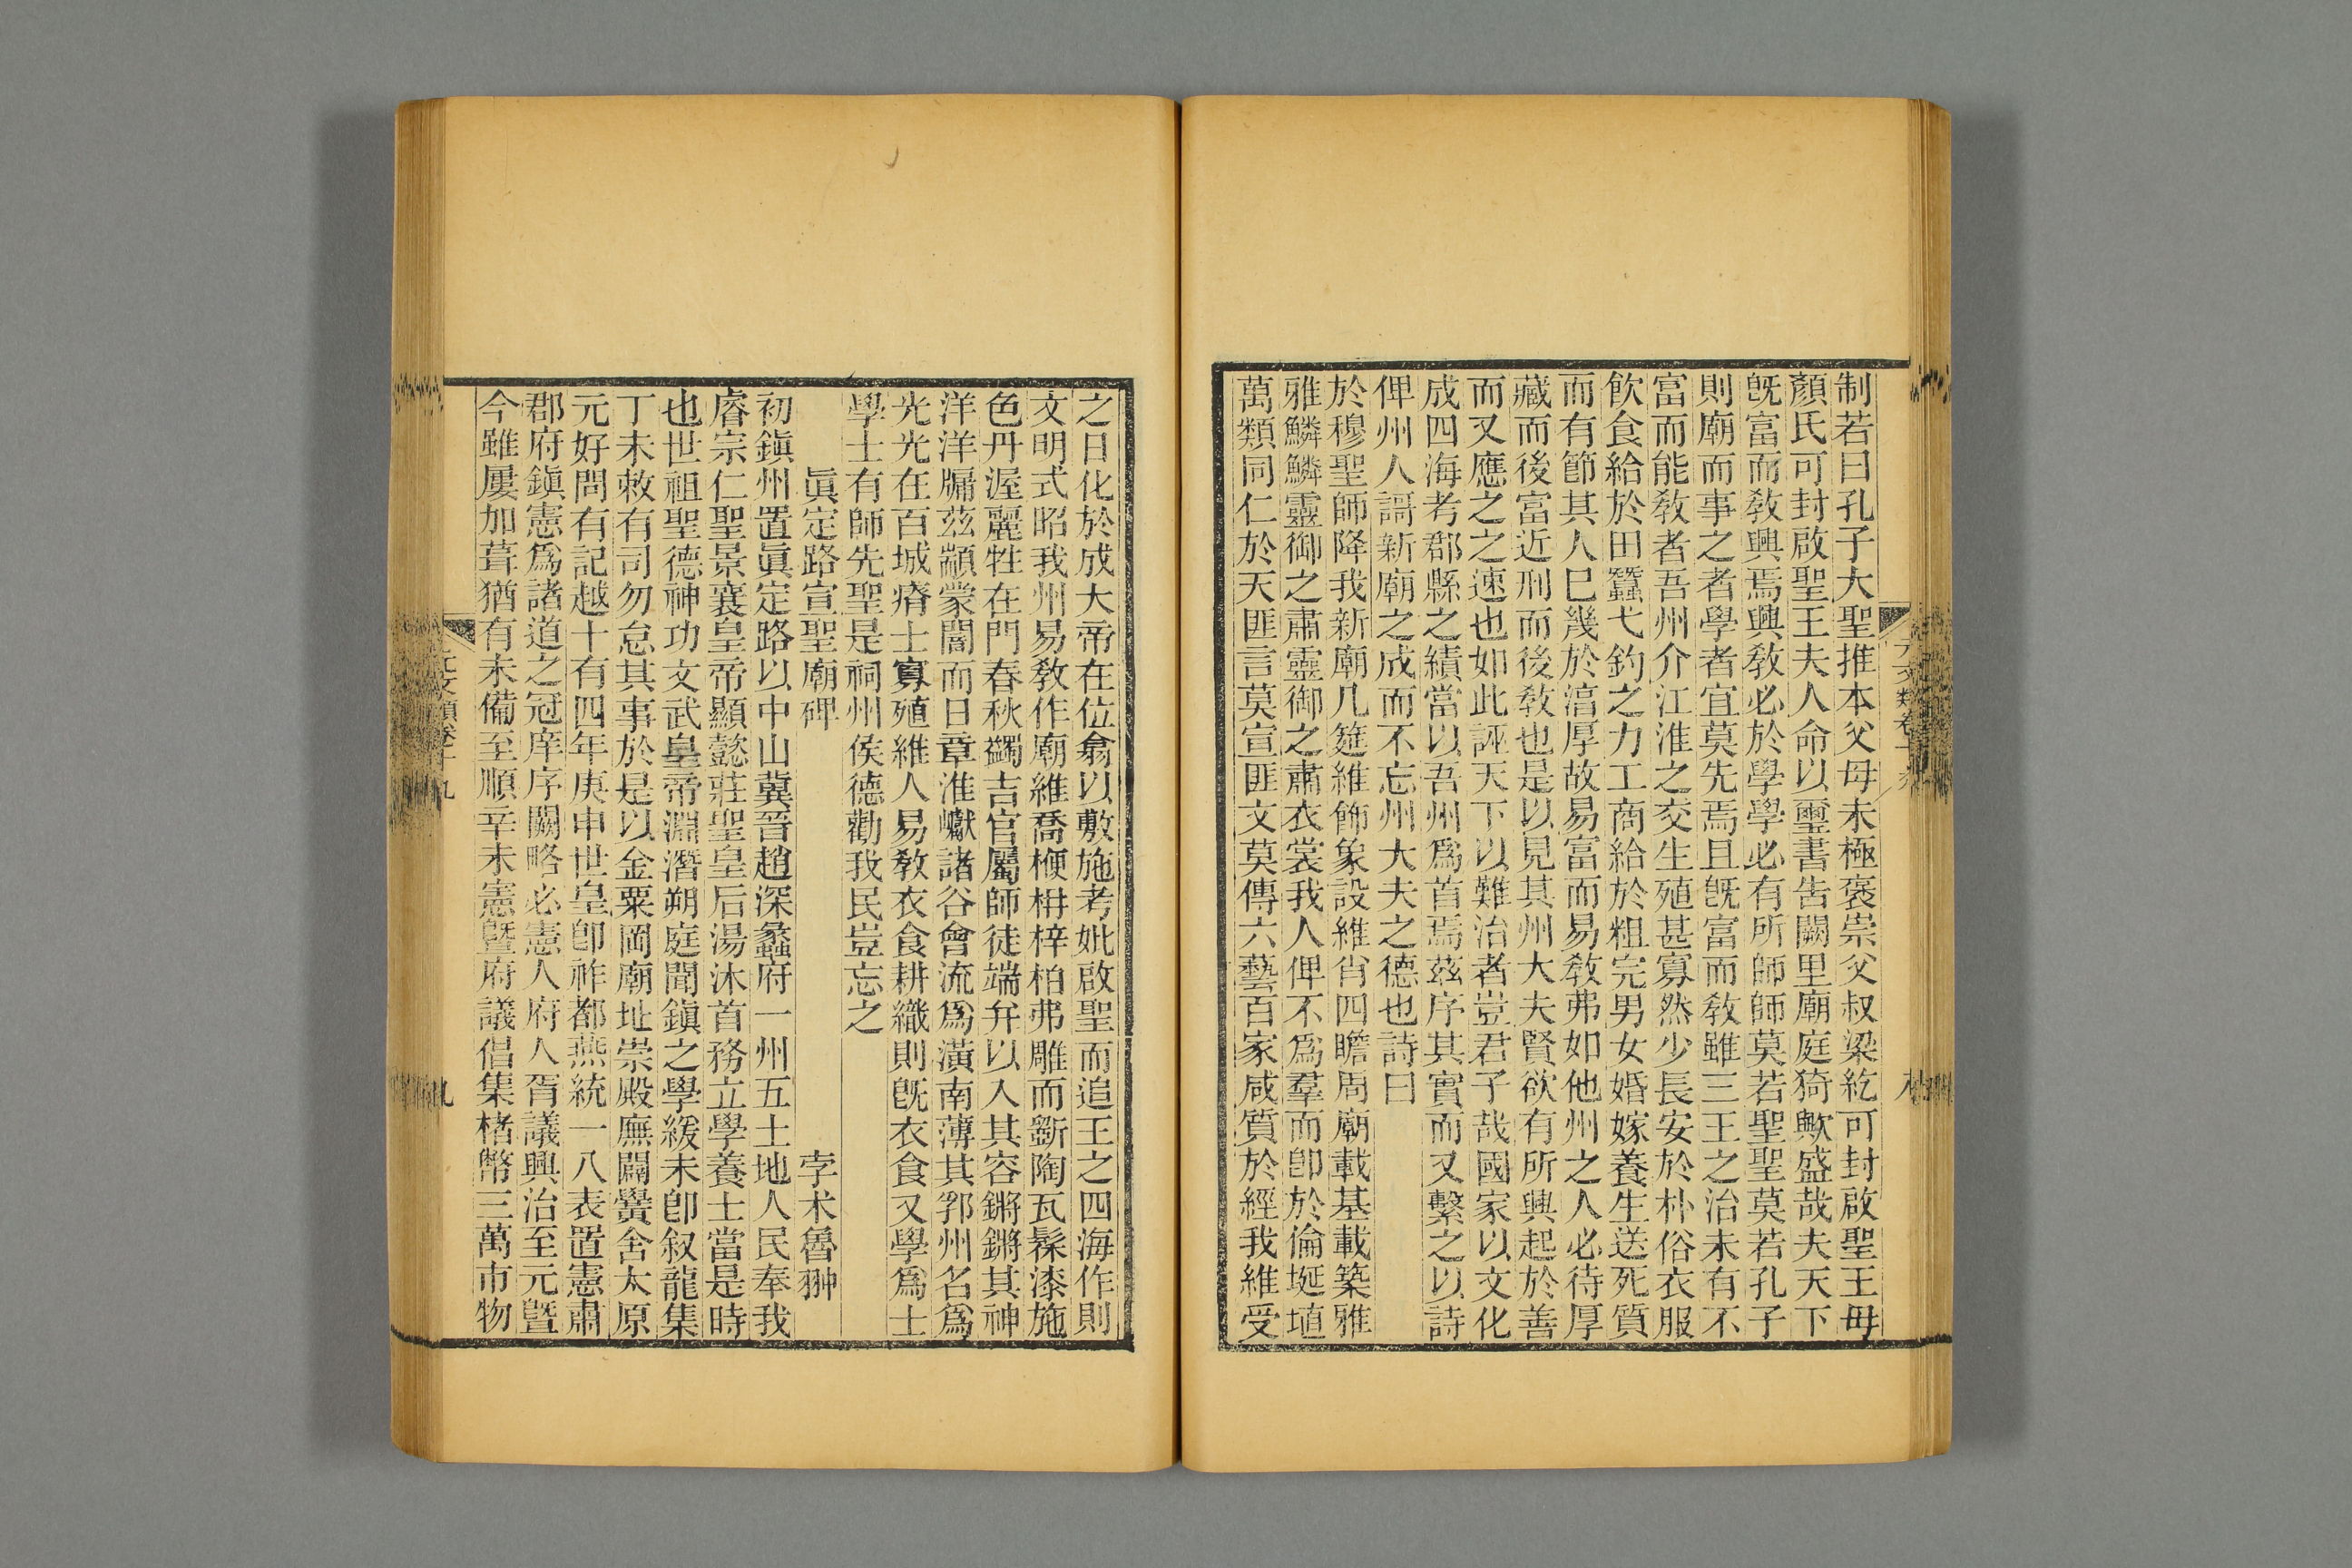 制若曰孔子大聖推本父母未極褒崇父叔梁紇可封啟聖王母
顏氏可封啟聖王夫人命以璽書告闕里廟庭猗歟盛哉夫天下
旣富而敎興焉興敎必於學學必有所師師莫若聖聖莫若孔子
則廟而事之者學者宜莫先焉且旣富而敎雖三王之治未有不
富而能敎者吾州介江淮之交生殖甚寡然少長安於朴俗衣服
飮食給於田蠶弋釣之力工商給於粗完男女婚嫁養生送死質
而有節其人已幾於湻厚故易富而易敎弗如他州之人必待厚
藏而後富近刑而後敎也是以見其州大夫賢欲有所興起於善
而又應之之速也如此誣天下以難治者豈君子哉國家以文化
成四海考郡縣之績當以吾州爲首焉茲序其實而又繫之以詩
俾州人謌新廟之成而不忘州大夫之德也詩曰
於穆聖師降我新廟几筵維飾象設維肖四瞻周廟載基載築雅
雅鱗鱗靈御之肅靈御之肅衣裳我人俾不爲羣而卽於倫埏埴
萬類同仁於天匪言莫宣匪文莫傳六藝百家咸質於經我維受
之日化於成大帝在位翕以敷施考妣啟聖而追王之四海作則
文明式昭我州易敎作廟維喬楩枏梓柏弗雕而斲陶瓦髹漆施
色丹渥麗牲在門春秋蠲吉官屬師徒端弁以入其容鏘鏘其神
洋洋牖茲顓蒙闇而日章淮巘諸谷會流爲潢南薄其郛州名爲
光光在百城瘠土寡殖維人易敎衣食耕織則旣衣食又學爲士
學士有師先聖是祠州侯德勸我民豈忘之
眞定路宣聖廟碑　孛术魯翀
初鎭州置眞定路以中山冀晉趙深蠡府一州五土地人民奉我
睿宗仁聖景襄皇帝顯懿莊聖皇后湯沐首務立學養士當是時
也世祖聖德神功文武皇帝淵潛朔庭聞鎭之學緩未卽叙龍集
丁未敕有司勿怠其事於是以金粟岡廟址崇殿廡闢黌舍太原
元好問有記越十有四年庚申世皇卽祚都燕統一八表置憲肅
郡府鎭憲爲諸道之冠庠序闕略必憲人府人胥議興治至元曁
今雖屢加葺猶有未備至順辛未憲曁府議倡集楮幣三萬市物